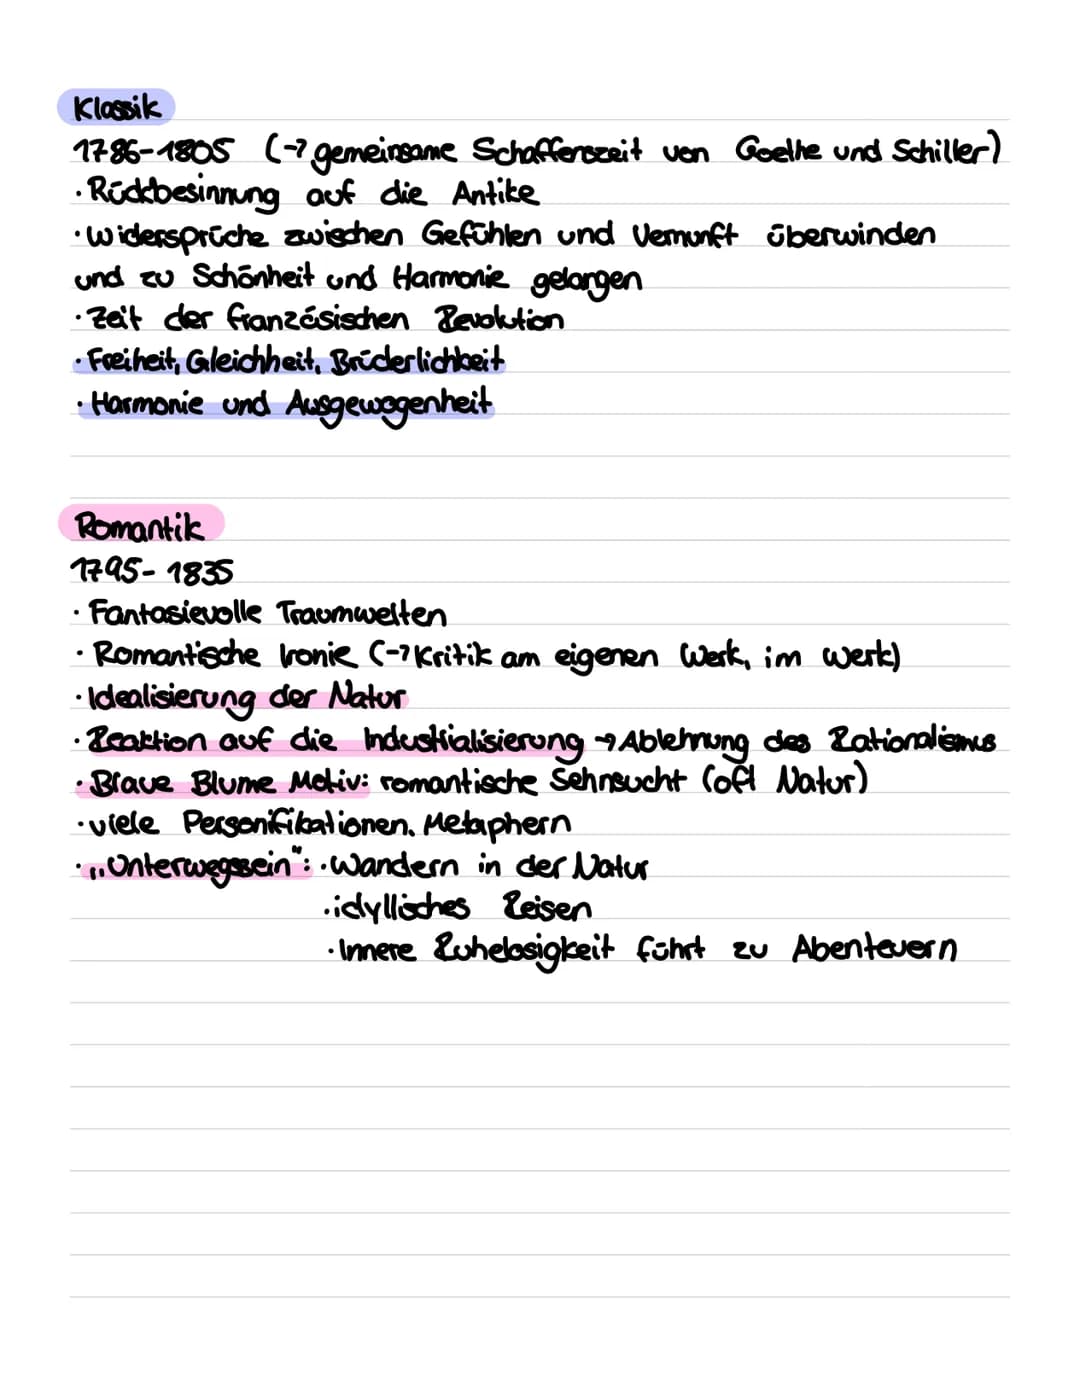 Klassik
1786-1805 (→ gemeinsame Schaffenszeit von Goethe und Schiller)
· Rückbesinnung auf die Antike
· Widersprüche zwischen Gefühlen und Vernunft überwinden
und zu Schönheit und Harmonie gelangen
· Zeit der französischen Revolution
· Freiheit, Gleichheit, Brüderlichkeit
· Harmonie und Ausgewogenheit
Romantik
1795-1835
· Fantasievolle Traumwelten
· Romantische Ironie (→ Kritik am eigenen Werk, im Werk)
· Idealisierung der Natur
· Reaktion auf die Industrialisierung → Ablehnung des Rationalismus
· Blaue Blume Motiv: romantische Sehnsucht (oft Natur)
· viele Personifikationen, Metaphern
· „Unterwegssein": · Wandern in der Natur
· idyllisches Reisen
· Innere Ruhelosigkeit führt zu Abenteuern